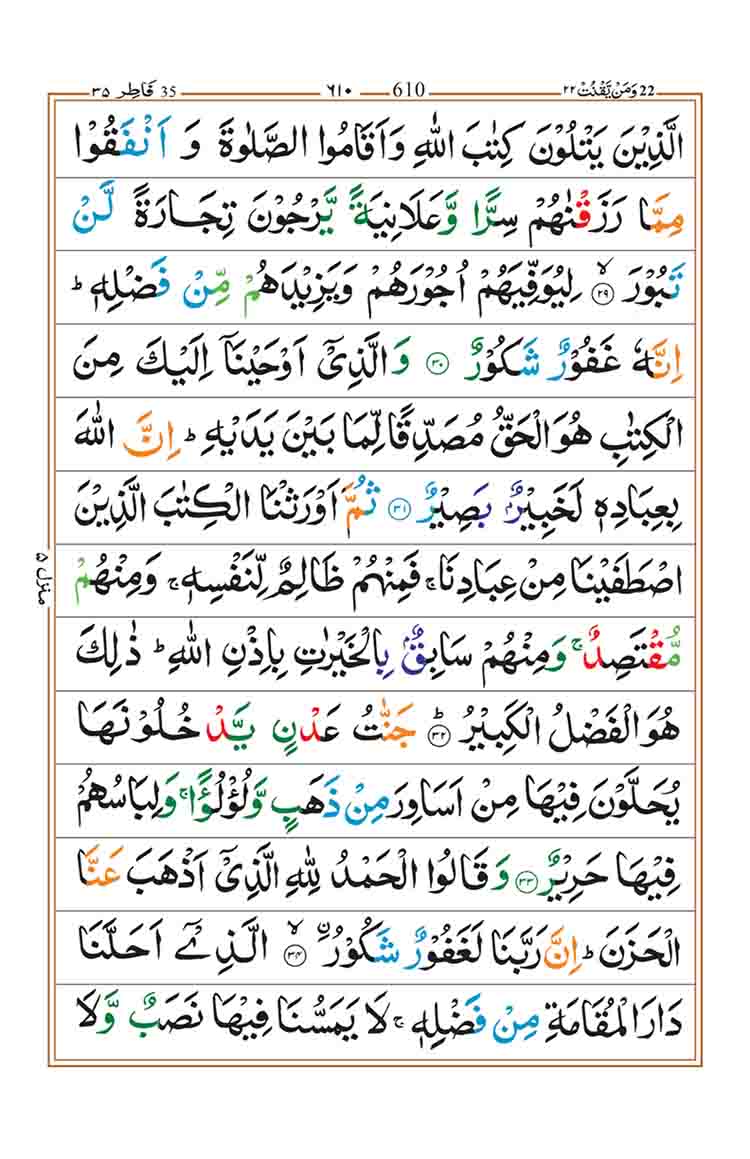 22 وَمَنْ يَّقْنُتْ ٢٢ 610 ٦١٠ 35 فَاطِر ٣٥
الَّذِيْنَ يَتْلُوْنَ كِتٰبَ اللّٰهِ وَاَقَامُوا الصَّلٰوةَ وَ اَنْفَقُوْا
مِمَّا رَزَقْنٰهُمْ سِرًّا وَّعَلَانِيَةً يَّرْجُوْنَ تِجَارَةً لَّنْ
تَبُوْرَ ۙ﴿٢٩﴾ لِيُوَفِّيَهُمْ اُجُوْرَهُمْ وَيَزِيْدَهُمْ مِّنْ فَضْلِهٖ ؕ
اِنَّهٗ غَفُوْرٌ شَكُوْرٌ ﴿٣٠﴾ وَالَّذِيْۤ اَوْحَيْنَاۤ اِلَيْكَ مِنَ
الْكِتٰبِ هُوَالْحَقُّ مُصَدِّقًا لِّمَا بَيْنَ يَدَيْهِ ؕ اِنَّ اللّٰهَ
بِعِبَادِهٖ لَخَبِيْرٌۢ بَصِيْرٌ ﴿٣١﴾ ثُمَّ اَوْرَثْنَا الْكِتٰبَ الَّذِيْنَ
اصْطَفَيْنَا مِنْ عِبَادِنَا ۚ فَمِنْهُمْ ظَالِمٌ لِّنَفْسِهٖ ۚ وَمِنْهُمْ
مُّقْتَصِدٌ ۚ وَمِنْهُمْ سَابِقٌۢ بِالْخَيْرٰتِ بِاِذْنِ اللّٰهِ ؕ ذٰلِكَ
هُوَالْفَضْلُ الْكَبِيْرُ ؕ﴿٣٢﴾ جَنّٰتُ عَدْنٍ يَّدْخُلُوْنَهَا
يُحَلَّوْنَ فِيْهَا مِنْ اَسَاوِرَ مِنْ ذَهَبٍ وَّلُؤْلُؤًا ۚ وَلِبَاسُهُمْ
فِيْهَا حَرِيْرٌ ﴿٣٣﴾ وَقَالُوا الْحَمْدُ لِلّٰهِ الَّذِيْۤ اَذْهَبَ عَنَّا
الْحَزَنَ ؕ اِنَّ رَبَّنَا لَغَفُوْرٌ شَكُوْرُ ۙ﴿٣٤﴾ ۨ الَّذِيْۤ اَحَلَّنَا
دَارَ الْمُقَامَةِ مِنْ فَضْلِهٖ ۚ لَا يَمَسُّنَا فِيْهَا نَصَبٌ وَّلَا
منزل ٥